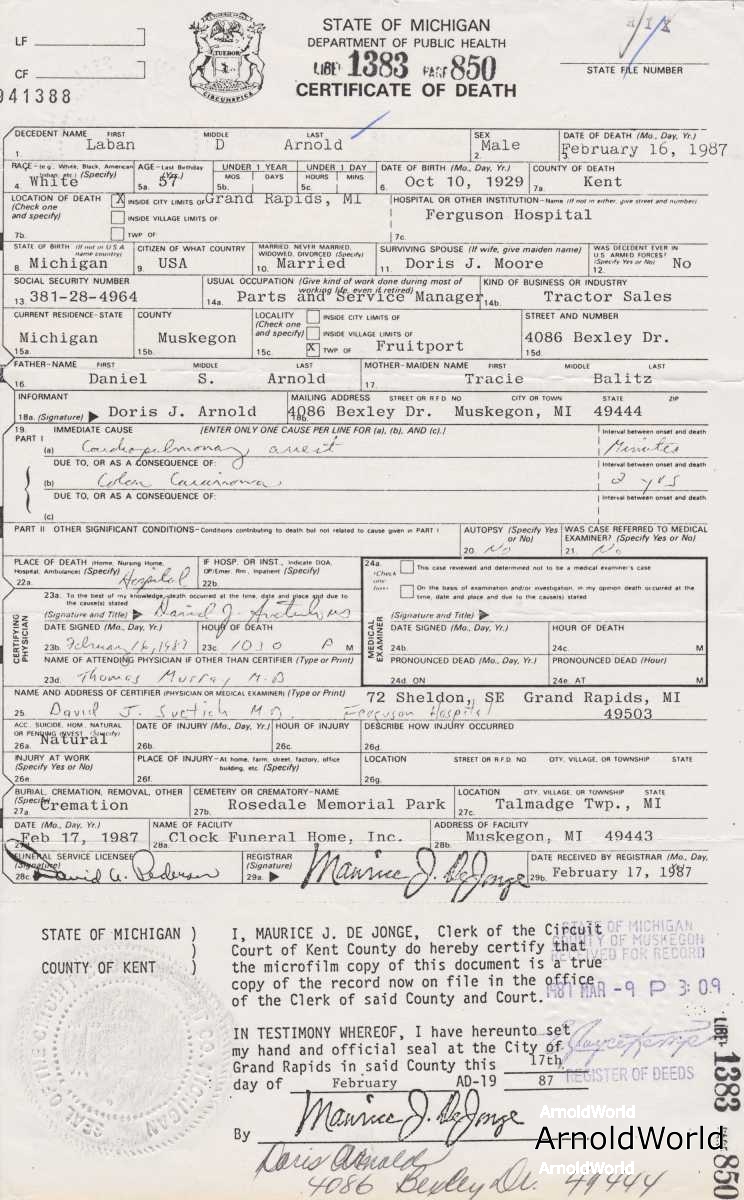 STATE OF MICHIGAN
DEPARTMENT OF PUBLIC HEALTH
LIBER 1383 PAGE 850
CERTIFICATE OF DEATH
LF
CF
TUEBOR
CIRCUMSPICE
STATE FILE NUMBER
941388
DECEDENT NAME FIRST MIDDLE LAST SEX DATE OF DEATH (Mo., Day, Yr.)
1. Laban D Arnold 2. Male 3. February 16, 1987
RACE-(e.g., White, Black, American Indian, etc.) (Specify) AGE-Last Birthday (Yrs.) UNDER 1 YEAR UNDER 1 DAY DATE OF BIRTH (Mo., Day, Yr.) COUNTY OF DEATH
MOS DAYS HOURS MINS
4. White 5a. 57 5b. 5c. 6. Oct 10, 1929 7a. Kent
LOCATION OF DEATH (Check one and specify) X INSIDE CITY LIMITS OF Grand Rapids, MI HOSPITAL OR OTHER INSTITUTION-Name (If not in either, give street and number)
INSIDE VILLAGE LIMITS OF Ferguson Hospital
7b. TWP OF 7c.
STATE OF BIRTH (If not in U S A name country) CITIZEN OF WHAT COUNTRY MARRIED, NEVER MARRIED, WIDOWED, DIVORCED (Specify) SURVIVING SPOUSE (If wife, give maiden name) WAS DECEDENT EVER IN U.S. ARMED FORCES? (Specify Yes or No)
8. Michigan 9. USA 10. Married 11. Doris J. Moore 12. No
SOCIAL SECURITY NUMBER USUAL OCCUPATION (Give kind of work done during most of working life, even if retired) KIND OF BUSINESS OR INDUSTRY
13. 381-28-4964 14a. Parts and Service Manager 14b. Tractor Sales
CURRENT RESIDENCE-STATE COUNTY LOCALITY (Check one and specify) INSIDE CITY LIMITS OF STREET AND NUMBER
INSIDE VILLAGE LIMITS OF
15a. Michigan 15b. Muskegon 15c. X TWP OF Fruitport 15d. 4086 Bexley Dr.
FATHER-NAME FIRST MIDDLE LAST MOTHER-MAIDEN NAME FIRST MIDDLE LAST
16. Daniel S. Arnold 17. Tracie Balitz
INFORMANT MAILING ADDRESS STREET OR R.F.D NO CITY OR TOWN STATE ZIP
18a. (Signature) Doris J. Arnold 18b. 4086 Bexley Dr. Muskegon, MI 49444
19. IMMEDIATE CAUSE [ENTER ONLY ONE CAUSE PER LINE FOR (a), (b), AND (c).] Interval between onset and death
PART I (a) Cardiopulmonary arrest Minutes
DUE TO, OR AS A CONSEQUENCE OF: Interval between onset and death
(b) Colon Carcinoma 2 yrs
DUE TO, OR AS A CONSEQUENCE OF: Interval between onset and death
(c)
PART II OTHER SIGNIFICANT CONDITIONS-Conditions contributing to death but not related to cause given in PART I AUTOPSY (Specify Yes or No) WAS CASE REFERRED TO MEDICAL EXAMINER? (Specify Yes or No)
20. No 21. No
PLACE OF DEATH (Home, Nursing Home, Hospital, Ambulance) (Specify) IF HOSP. OR INST., Indicate DOA, OP/Emer. Rm., Inpatient (Specify)
22a. Hospital 22b.
24a. (Check one box) This case reviewed and determined not to be a medical examiner's case
On the basis of examination and/or investigation, in my opinion death occurred at the time, date and place and due to the cause(s) stated
(Signature and Title)
CERTIFYING PHYSICIAN
23a. To the best of my knowledge, death occurred at the time, date and place and due to the cause(s) stated
(Signature and Title) David J.
DATE SIGNED (Mo., Day, Yr.) HOUR OF DEATH
23b. February 16, 1987 23c. 1030 P M
NAME OF ATTENDING PHYSICIAN IF OTHER THAN CERTIFIER (Type or Print)
23d. Thomas Murray M.D
MEDICAL EXAMINER
DATE SIGNED (Mo., Day, Yr.) HOUR OF DEATH
24b. 24c. M
PRONOUNCED DEAD (Mo., Day, Yr.) PRONOUNCED DEAD (Hour)
24d ON 24e AT M
NAME AND ADDRESS OF CERTIFIER (PHYSICIAN OR MEDICAL EXAMINER) (Type or Print) 72 Sheldon, SE Grand Rapids, MI
25. David J. M.D. Ferguson Hospital 49503
ACC. SUICIDE, HOM. NATURAL OR PENDING INVEST. (Specify) DATE OF INJURY (Mo., Day, Yr.) HOUR OF INJURY DESCRIBE HOW INJURY OCCURRED
26a. Natural 26b. 26c. M 26d.
INJURY AT WORK (Specify Yes or No) PLACE OF INJURY-At home, farm, street, factory, office building, etc. (Specify) LOCATION STREET OR R.F.D NO CITY, VILLAGE, OR TOWNSHIP STATE
26e. 26f. 26g.
BURIAL, CREMATION, REMOVAL, OTHER (Specify) CEMETERY OR CREMATORY-NAME LOCATION CITY, VILLAGE, OR TOWNSHIP STATE
27a. Cremation 27b. Rosedale Memorial Park 27c. Talmadge Twp., MI
DATE (Mo., Day, Yr.) NAME OF FACILITY ADDRESS OF FACILITY
27d. Feb 17, 1987 28a. Clock Funeral Home, Inc. 28b. Muskegon, MI 49443
FUNERAL SERVICE LICENSEE (Signature) REGISTRAR (Signature) DATE RECEIVED BY REGISTRAR (Mo., Day, Yr.)
28c. David A. Pederson 29a. Maurice J. DeJonge 29b. February 17, 1987
STATE OF MICHIGAN )
)
COUNTY OF KENT )
I, MAURICE J. DE JONGE, Clerk of the Circuit
Court of Kent County do hereby certify that
the microfilm copy of this document is a true
copy of the record now on file in the office
of the Clerk of said County and Court.
STATE OF MICHIGAN
COUNTY OF MUSKEGON
RECEIVED FOR RECORD
1987 MAR -9 P 3:09
IN TESTIMONY WHEREOF, I have hereunto set
my hand and official seal at the City of
Grand Rapids in said County this 17th
day of February AD-19 87
REGISTER OF DEEDS
By Maurice J. DeJonge
LIBER 1383 PAGE 850
ArnoldWorld
ArnoldWorld
ArnoldWorld
Doris Arnold
4086 Bexley Dr. 49444